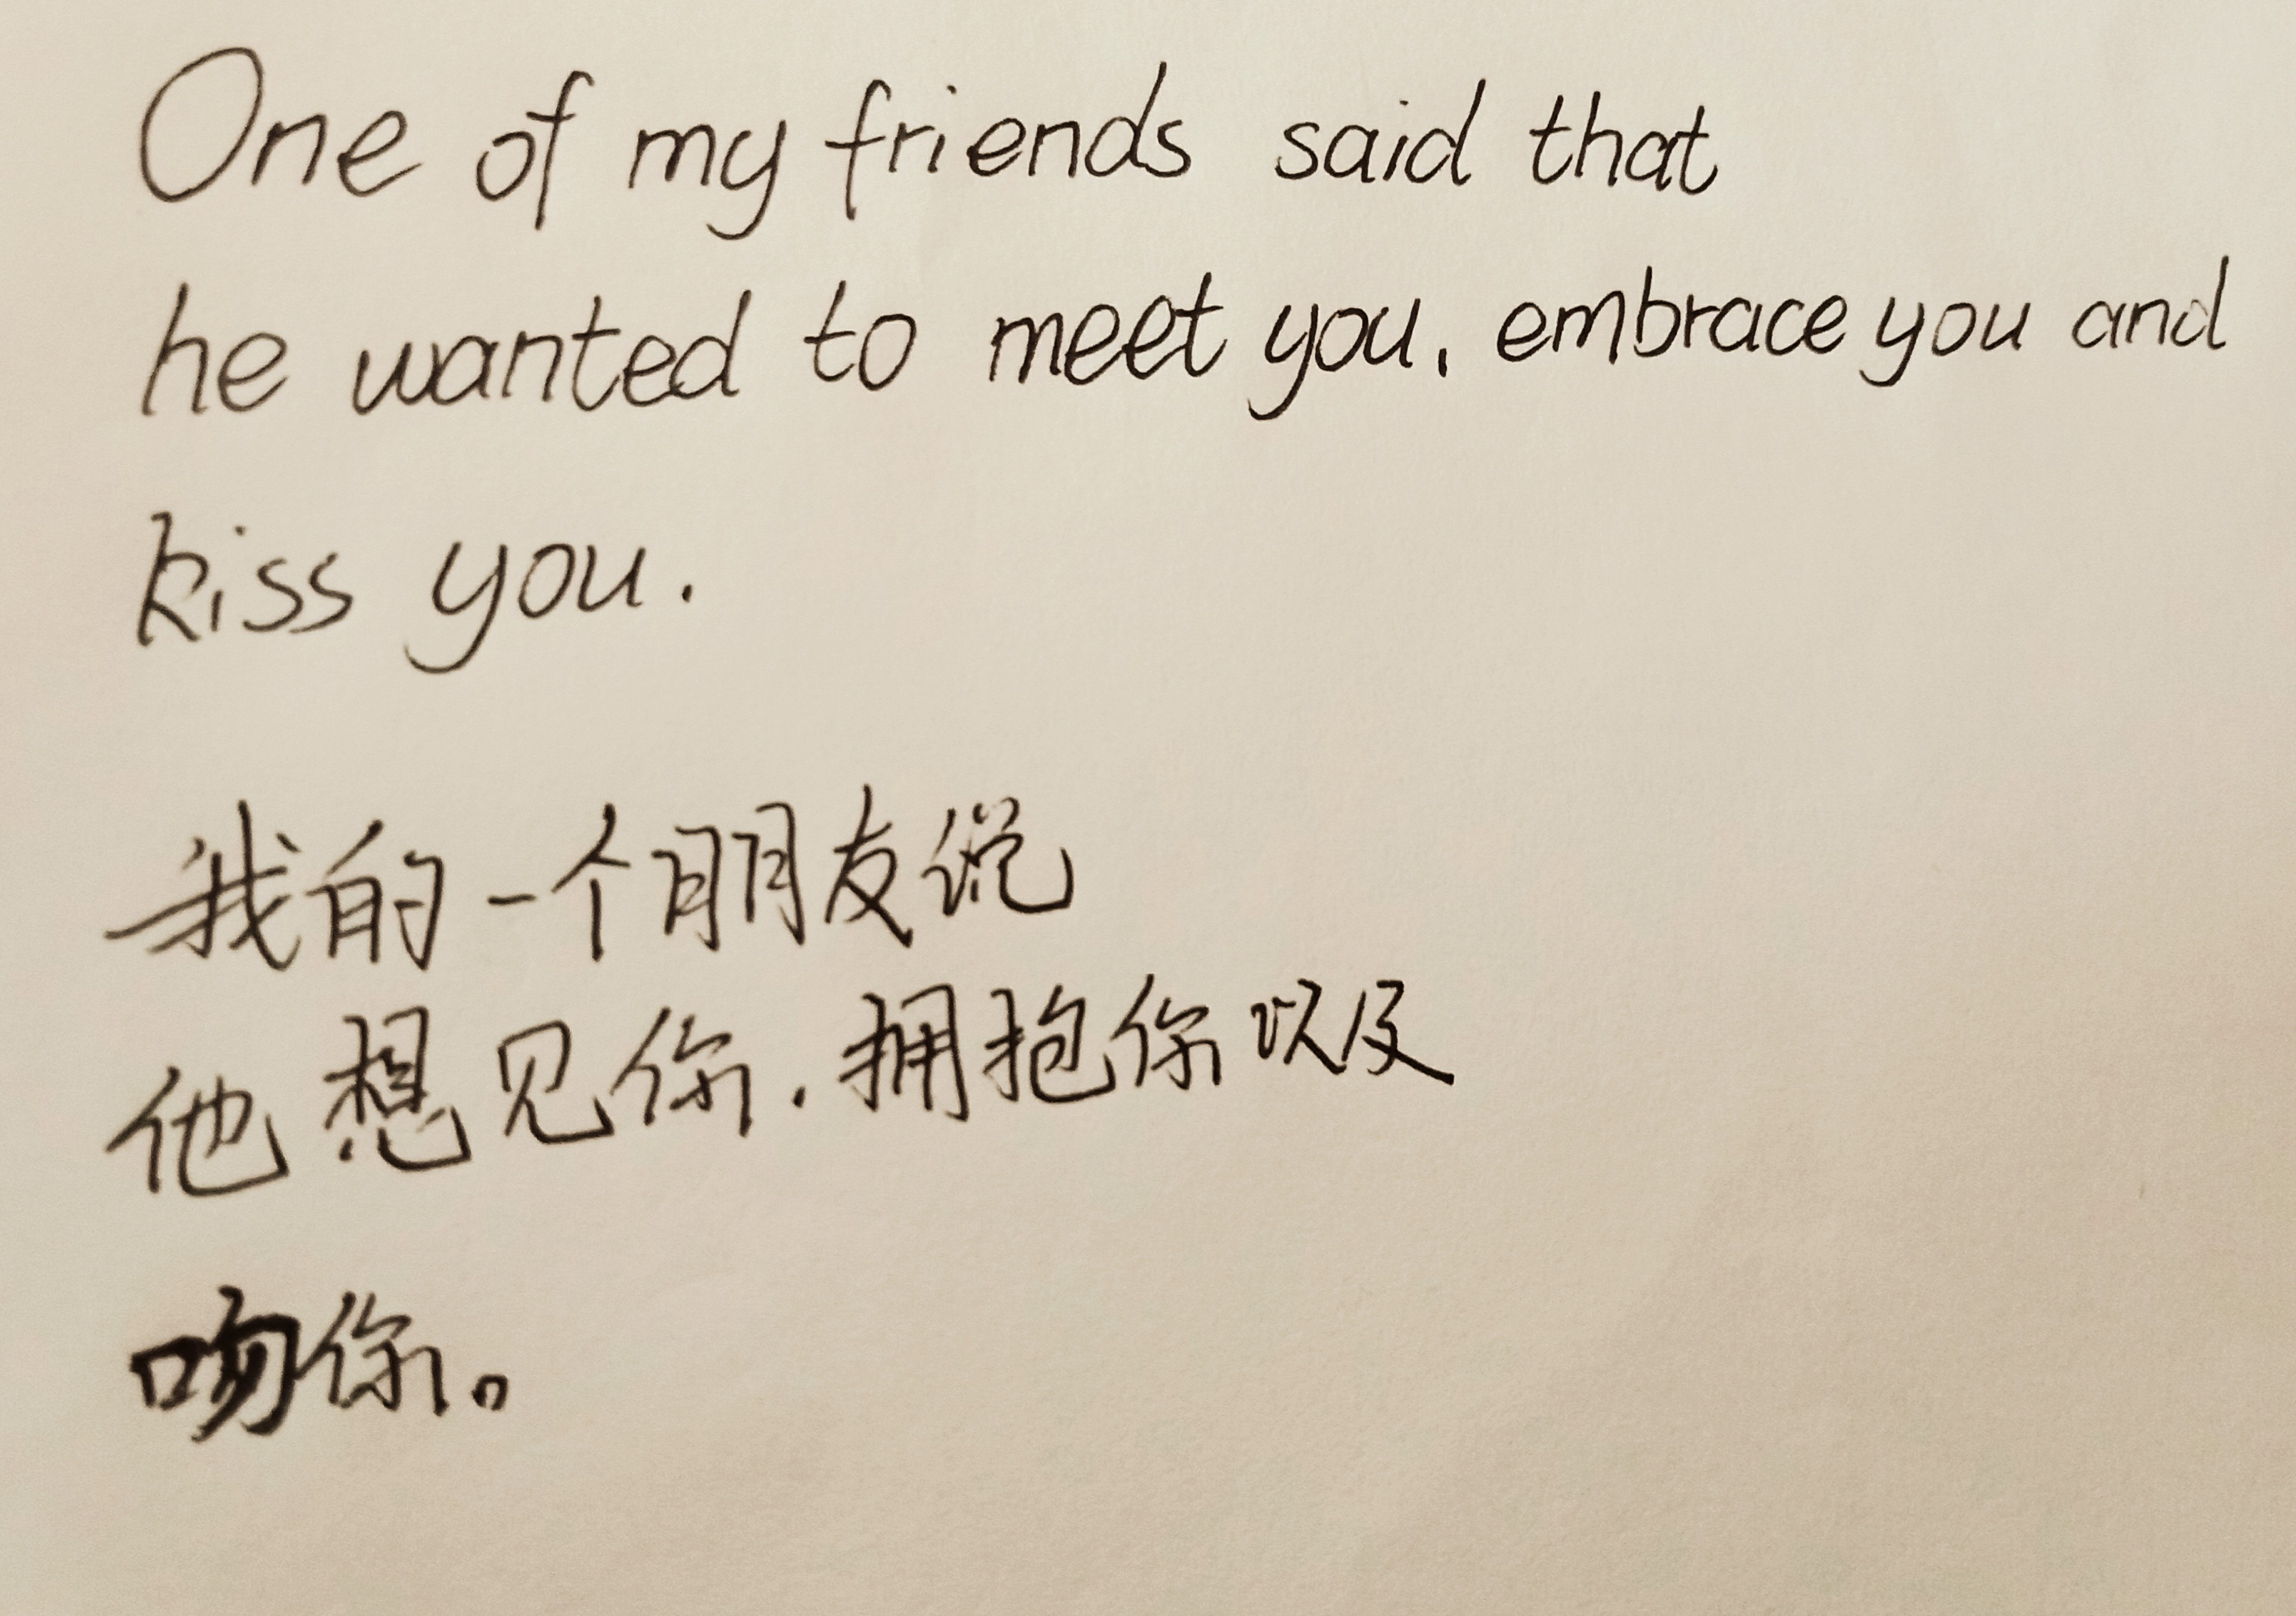 One of my friends said that
he wanted to meet you, embrace you and
kiss you.
我的一个朋友说
他想见你，拥抱你以及
吻你。